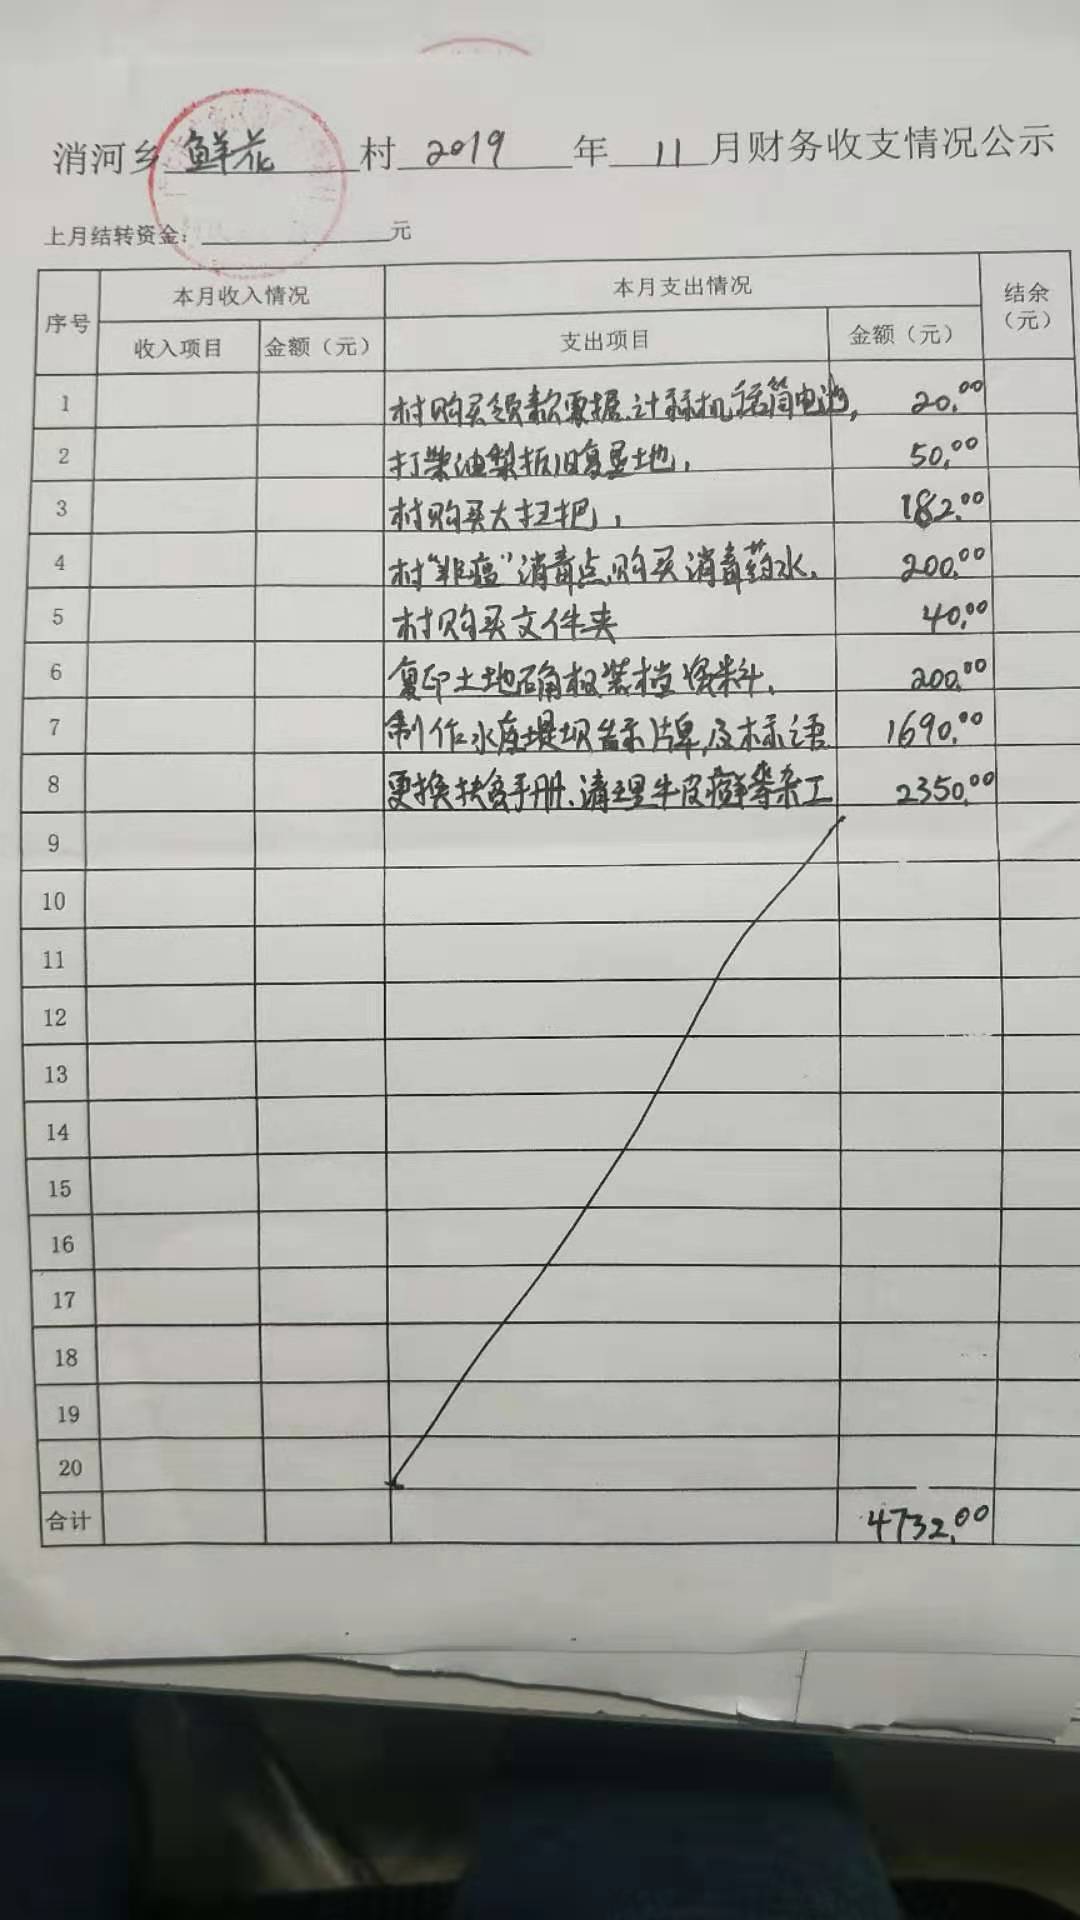 消河乡 鲜花 村 2019 年 11 月财务收支情况公示
上月结转资金： 元
序号 本月收入情况 本月支出情况 结余（元）
收入项目 金额（元） 支出项目 金额（元）
1 村购买领款票据、计算机话筒电池, 20.00
2 打柴油犁拆旧复垦地, 50.00
3 村购买大扫把, 182.00
4 村"非瘟"消毒点购买消毒药水, 200.00
5 村购买文件夹 40.00
6 复印土地确权装档资料, 200.00
7 制作水库堤坝告示牌,及标语 1690.00
8 更换扶贫手册、清理牛皮癣等杂工 2350.00
9
10
11
12
13
14
15
16
17
18
19
20
合计 4732.00